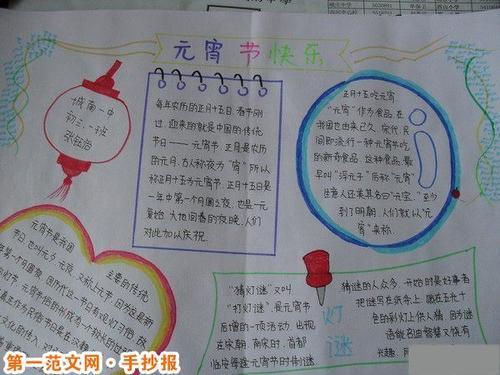 元宵节快乐
城南一中
初三·一班
张钰浩
每年农历的正月十五日,春节刚
过,迎来的就是中国的传统
节日——元宵节。正月是农历
的元月,古人称夜为"宵"所以
称正月十五为元宵节。正月十五日是
一年中第一个月圆之夜,也是一元
复始,大地回春的夜晚,人们
对此加以庆祝.
正月十五吃元宵
"元宵"作为食品,在
我国也由来已久.宋代,民
间即流行一种元宵节吃
的新奇食品.这种食品,最
早叫"浮元子"后称"元宵"
生意人还美其名曰"元宝."至少
到了明朝,人们就以"元
宵"来称.
元宵节是我国
主要的传统
节日,也叫
元夜,又称上元节,因为这是新
"猜灯谜"又叫
"打灯谜"是元宵节
后增的一项活动,出现
在宋朝.南宋时,首都
临安每逢元宵节时制谜,
灯
谜
猜谜的人众多.开始时是好事者
把谜写在纸条上,贴在五光十
色的彩灯上供人猜.因为谜
语能启迪智慧又饶有
兴趣,
第一范文网·手抄报